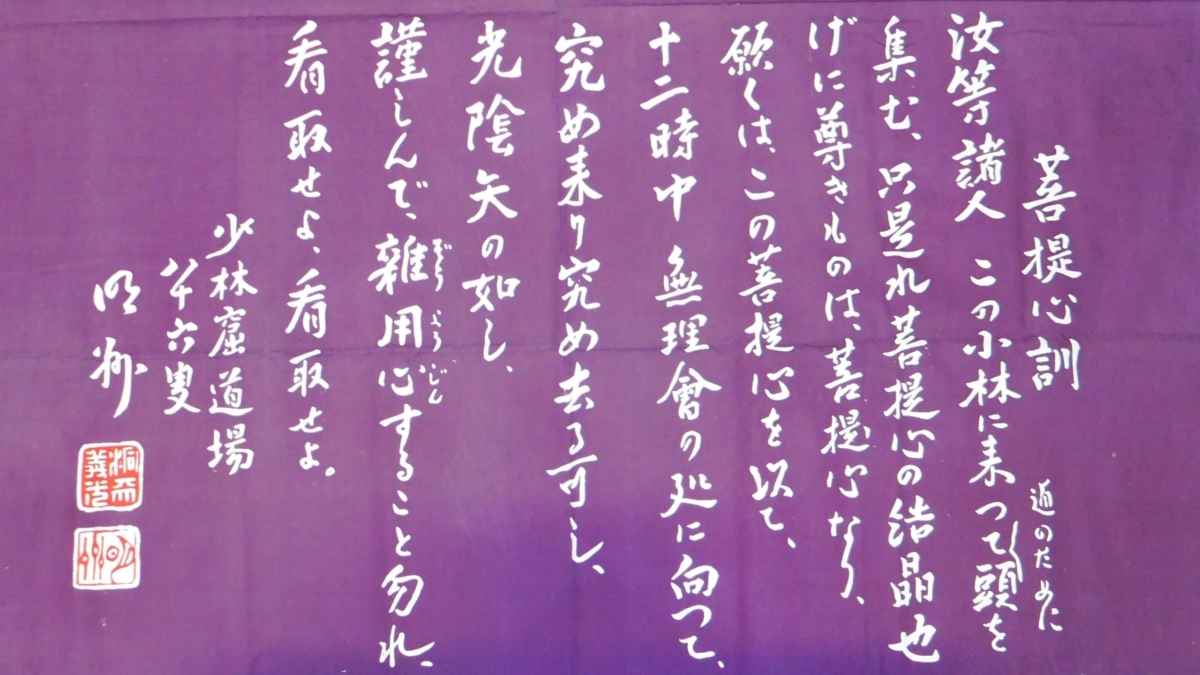 菩提心訓
汝等諸人 この小林に来つて道のために頭を
集む、只是れ菩提心の結晶也
げに尊きものは、菩提心なり、
願くは、この菩提心を以て、
十二時中 無理會の処に向つて、
究め来り究め去る可し、
光陰矢の如し、
謹しんで、雑用心することを勿れ、
ぞうようじん
看取せよ、看取せよ。
少林窟道場
八十六叟
明州